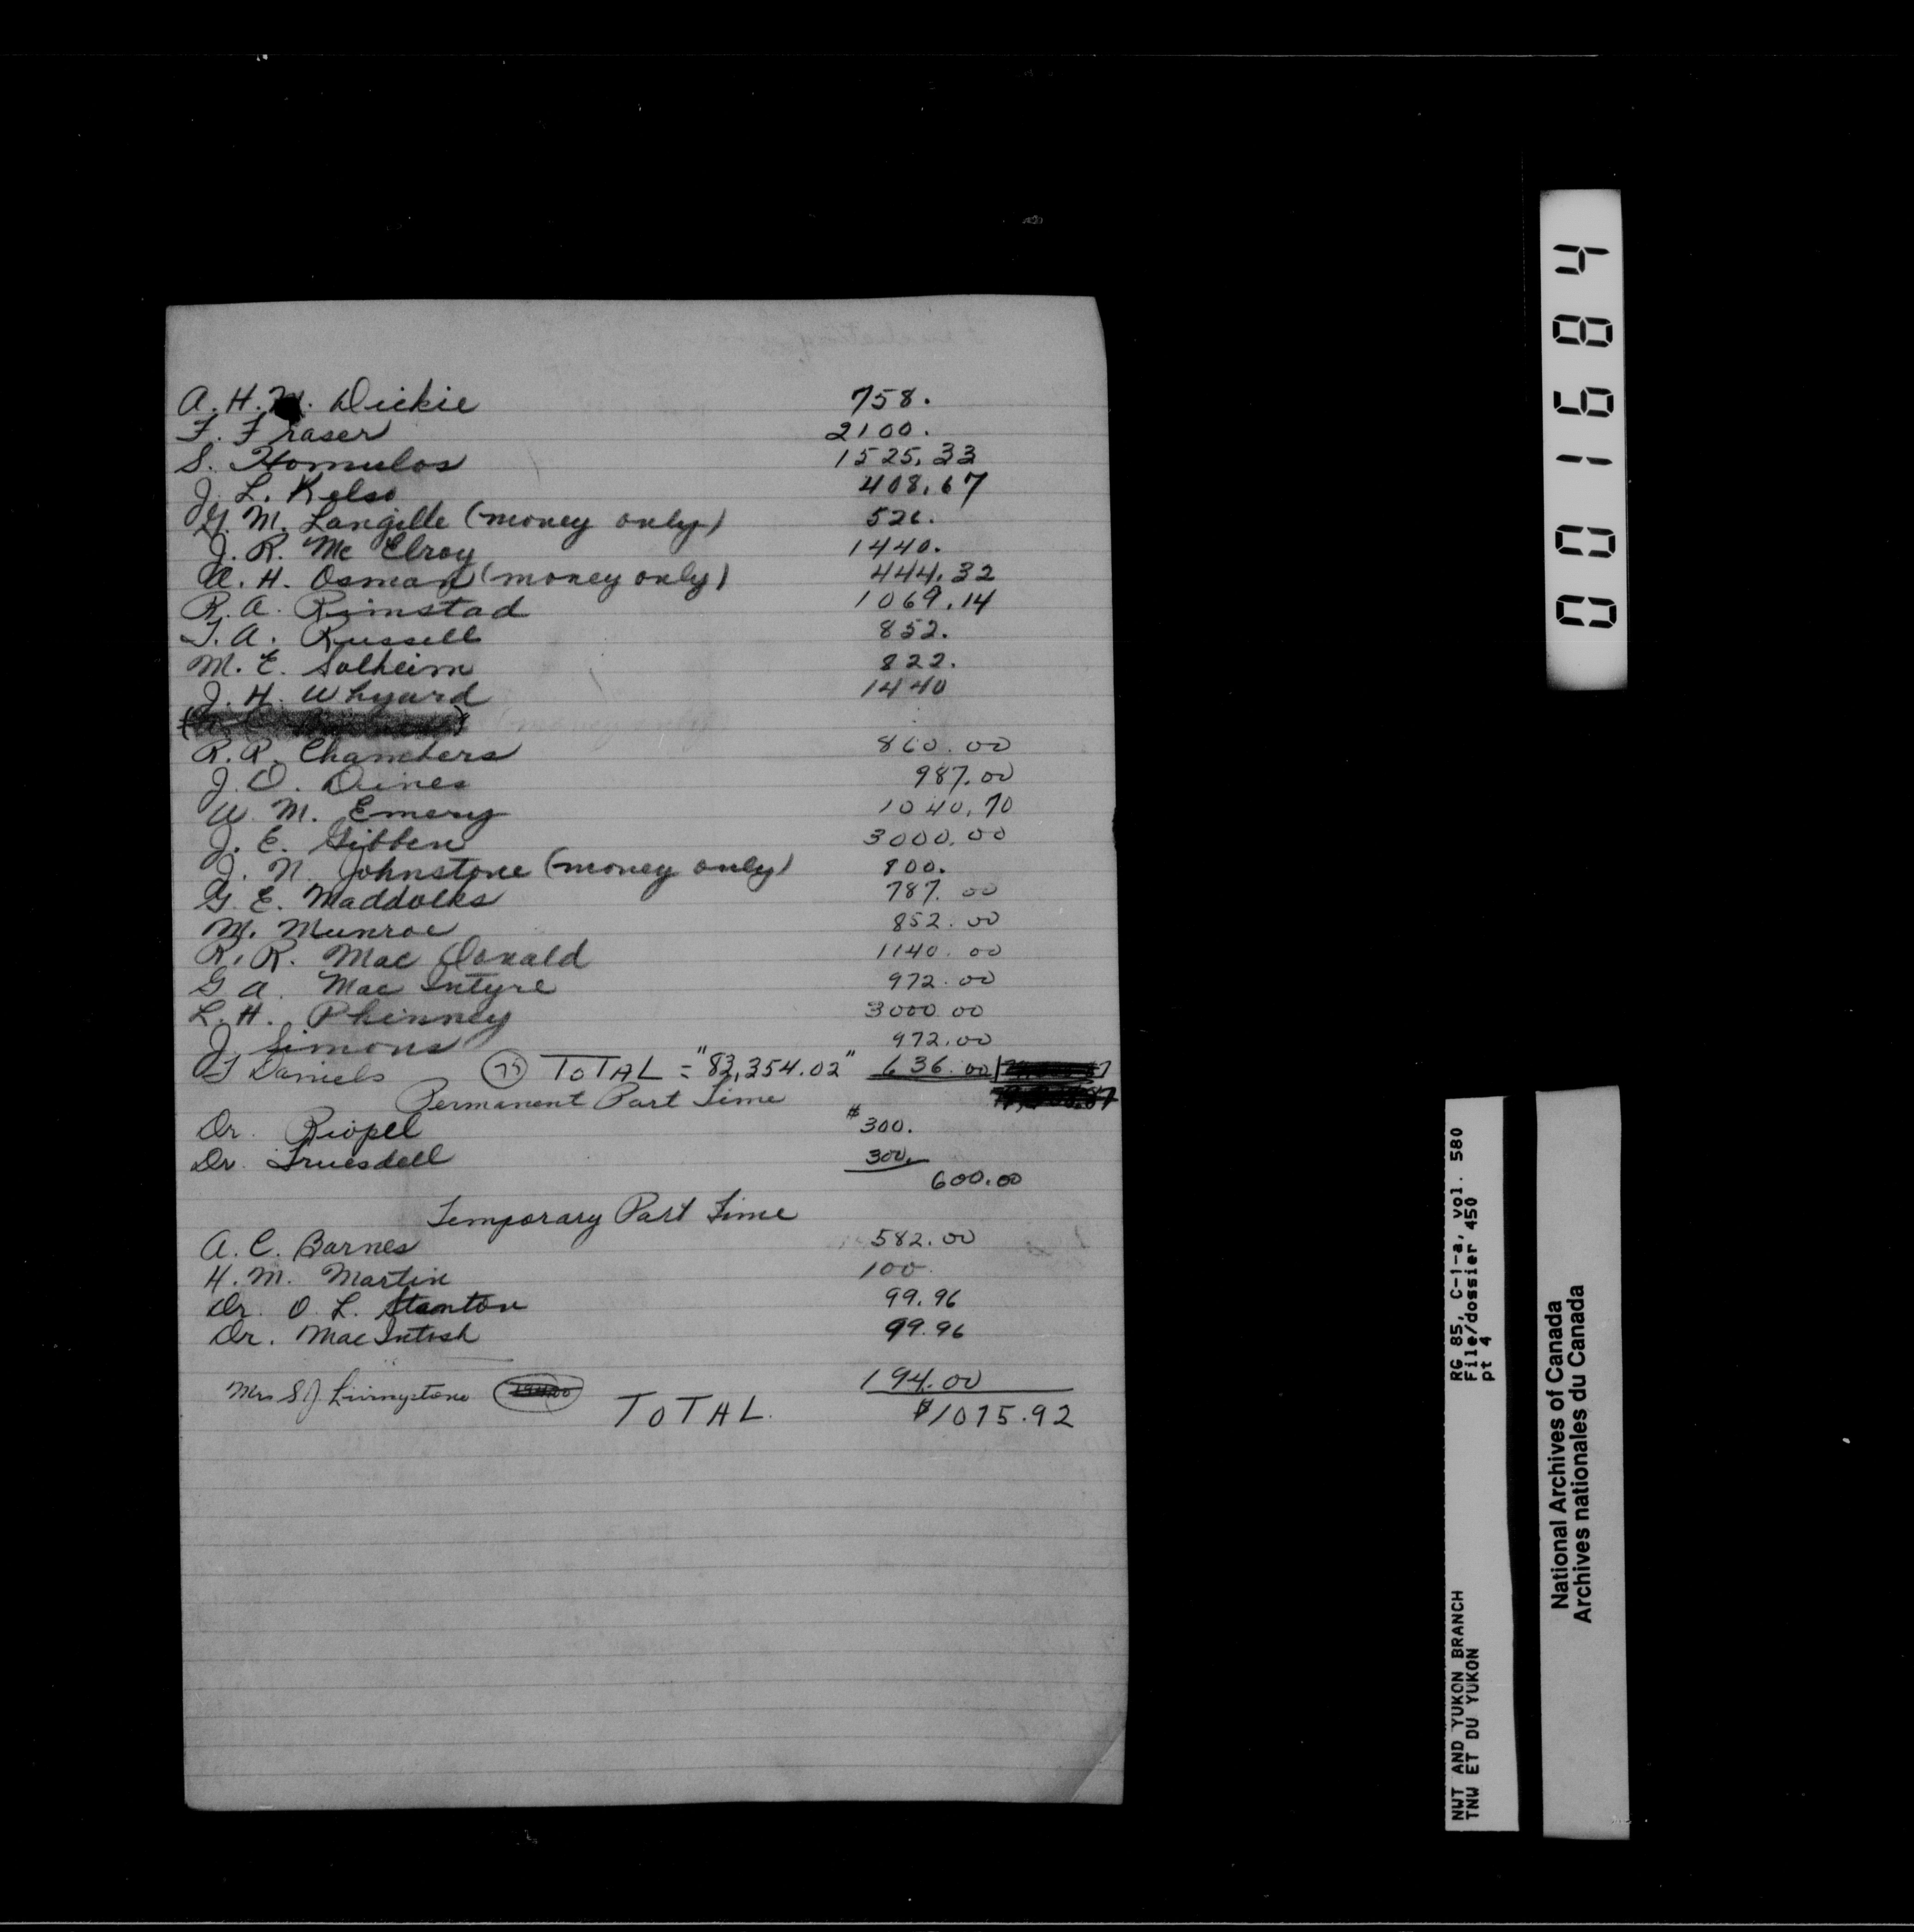 A. H. M. Dickie 758.
F. Fraser 2100.
S. Homulos 1525.33
J. L. Kelso 408.67
G. M. Langille (money only) 526.
J. R. Mc Elroy 1440.
A. H. Osman (money only) 444.32
R. A. Rimstad 1069.14
T. A. Russell 852.
M. E. Solheim 822.
J. H. Whyard 1440
R. R. Chambers 860.00
J. O. Dines 987.00
W. M. Emery 1040.70
J. E. Gibben 3000.00
J. N. Johnstone (money only) 800.
G. E. Maddocks 787.00
M. Munroe 852.00
R. R. Mac Donald 1140.00
G. A. Mac Intyre 972.00
L. H. Phinney 3000.00
J. Simons 972.00
Daniels TOTAL = "83,354.02" 636.00
Permanent Part Time
Dr. Riopel $300.
Dr. Truesdell 300.
600.00
Temporary Part Time
A. C. Barnes 582.00
H. M. Martin 100.
Dr. O. L. Stanton 99.96
Dr. MacIntosh 99.96
Mrs S J Livingstone 194.00
TOTAL. $1075.92
001684
RG 85, C-1-a, vol. 580
File/dossier 450
pt 4
NWT AND YUKON BRANCH
TNW ET DU YUKON
National Archives of Canada
Archives nationales du Canada